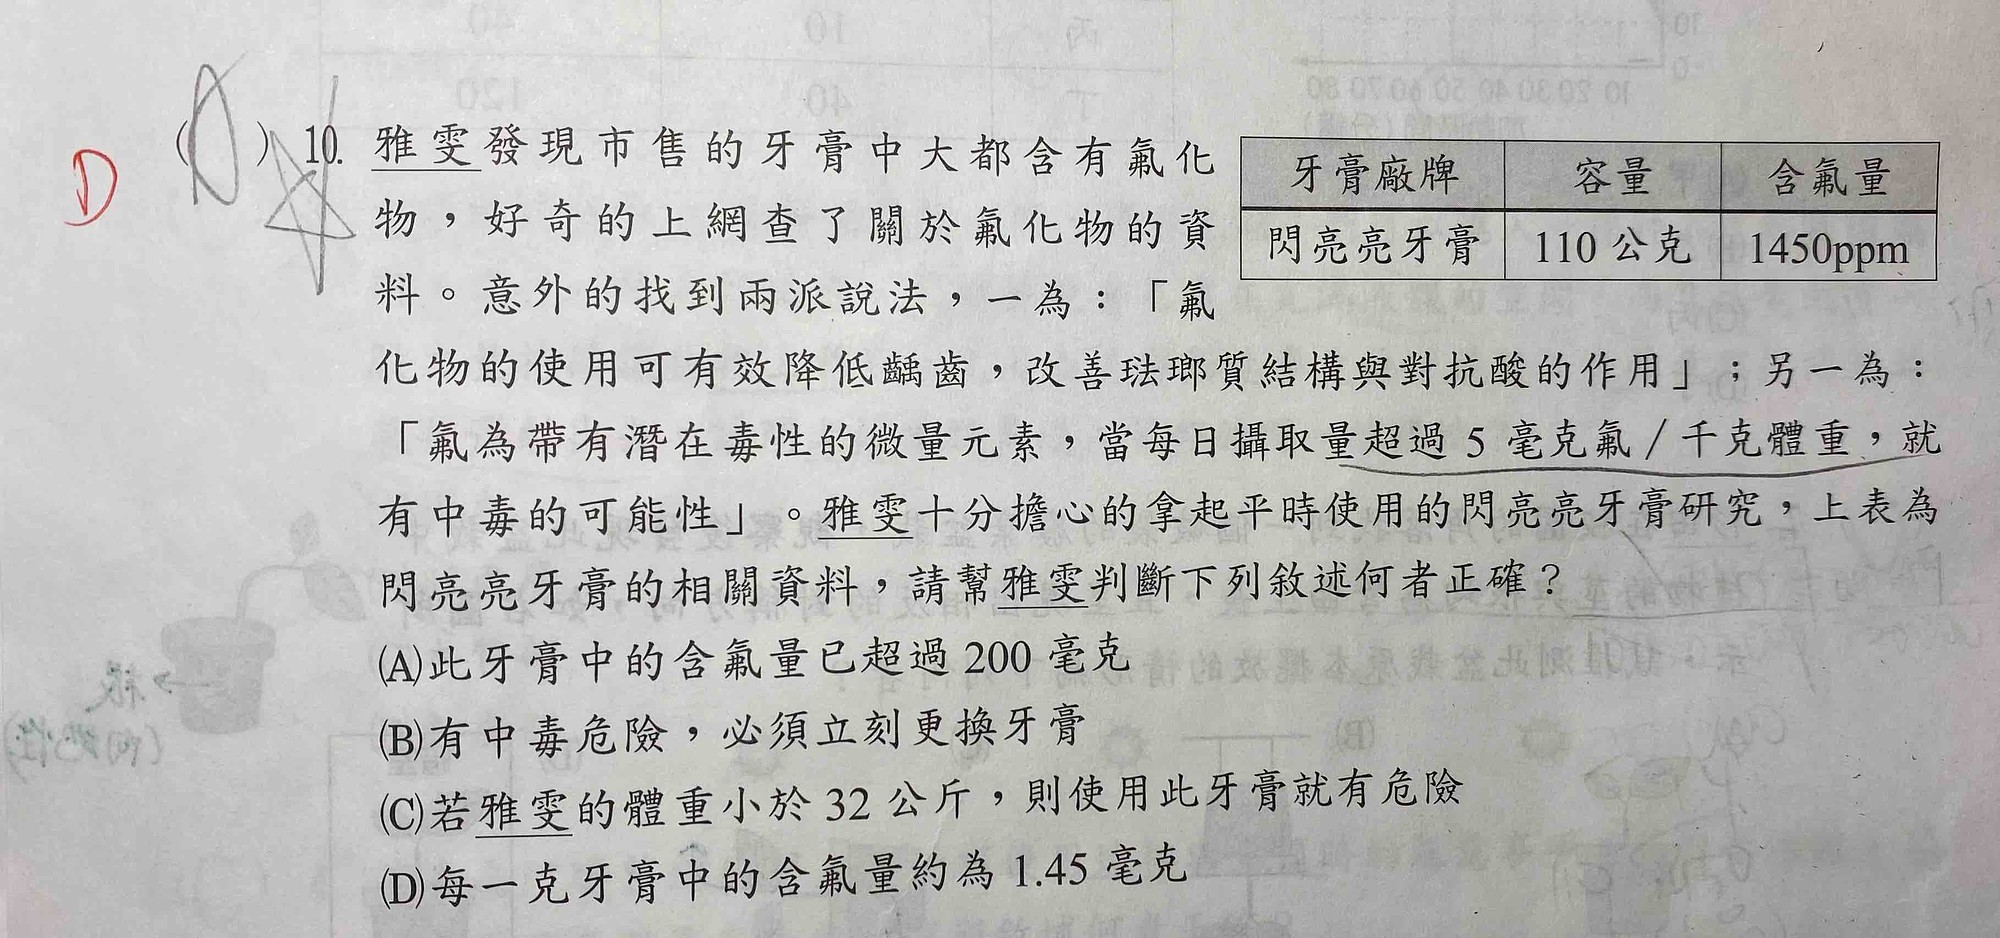 D
( ) 10. 雅雯發現市售的牙膏中大都含有氟化
物，好奇的上網查了關於氟化物的資
料。意外的找到兩派說法，一為：「氟
化物的使用可有效降低齲齒，改善琺瑯質結構與對抗酸的作用」；另一為：
「氟為帶有潛在毒性的微量元素，當每日攝取量超過 5 毫克氟／千克體重，就
有中毒的可能性」。雅雯十分擔心的拿起平時使用的閃亮亮牙膏研究，上表為
閃亮亮牙膏的相關資料，請幫雅雯判斷下列敘述何者正確？
牙膏廠牌 容量 含氟量
閃亮亮牙膏 110 公克 1450ppm
(A)此牙膏中的含氟量已超過 200 毫克
(B)有中毒危險，必須立刻更換牙膏
(C)若雅雯的體重小於 32 公斤，則使用此牙膏就有危險
(D)每一克牙膏中的含氟量約為 1.45 毫克